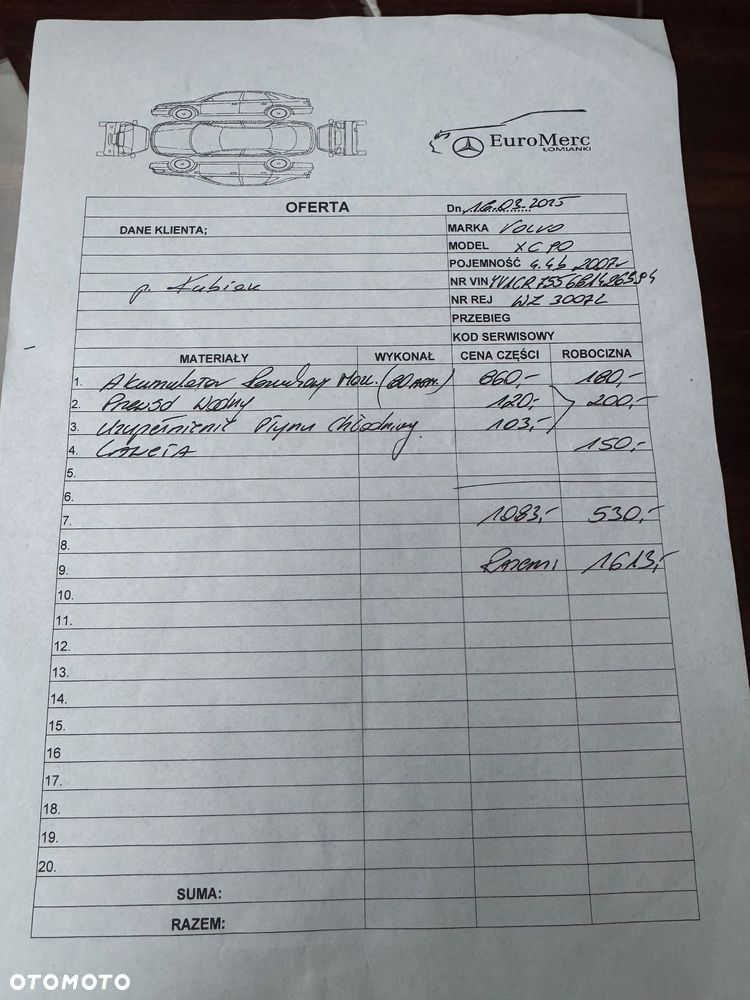 EuroMerc
ŁOMIANKI
OFERTA
Dn. 16.03.2015
DANE KLIENTA;
MARKA Volvo
MODEL XC 90
POJEMNOŚĆ 4.4b 2007r
p. Kubiak
NR VIN
NR REJ WZ 3007L
PRZEBIEG
KOD SERWISOWY
MATERIAŁY WYKONAŁ CENA CZĘŚCI ROBOCIZNA
1. Akumulator 860,- 180,-
2. Przewód Wodny 120,- 200,-
3. Uzupełnienie Płynu Chłodniczy 103,-
4. Laweta 150,-
5.
6.
7. 1083,- 530,-
8.
9. Razem: 1613,-
10.
11.
12.
13.
14.
15.
16
17.
18.
19.
20.
SUMA:
RAZEM:
OTOMOTO